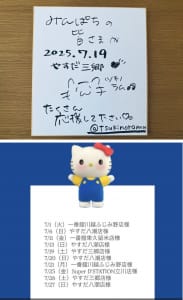 みんぱちの
皆さまへ
2025.7.19
やすだ三郷
たくさん
応援して下さい
@tsukinoramu
7/1（火）一番舘川越ふじみ野店様
7/6（日）やすだ八潮店様
7/11（金）一番舘東久留米店様
7/13（日）やすだ八潮店様
7/19（土）やすだ三郷店様
7/20（日）やすだ八潮店様
7/21（月）一番舘川越ふじみ野店様
7/25（金）Super D'STATION立川店様
7/26（土）やすだ三郷店様
7/27（日）やすだ八潮店様